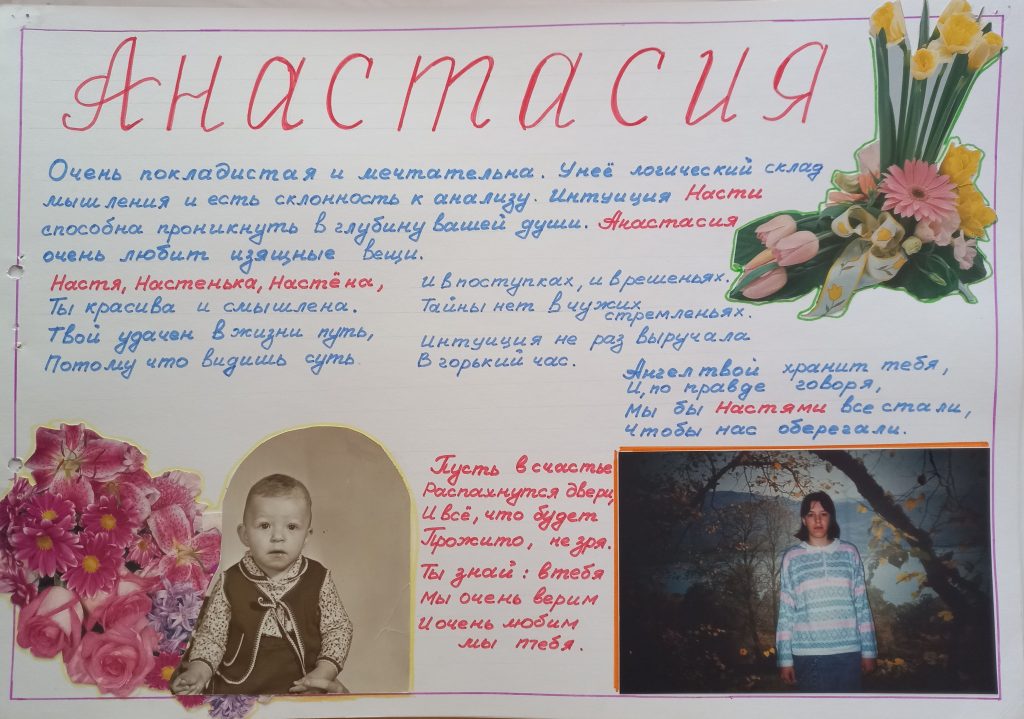 Анастасия
Очень покладистая и мечтательна. Унеё логический склад
мышления и есть склонность к анализу. Интуиция Насти
способна проникнуть в глубину вашей души. Анастасия
очень любит изящные вещи.
Настя, Настенька, Настёна,
Ты красива и смышлена.
Твой удачен в жизни путь,
Потому что видишь суть.
И в поступках, и в решеньях.
Тайны нет в чужих
стремленьях.
Интуиция не раз выручала
В горький час.
Ангел твой хранит тебя,
И, по правде говоря,
Мы бы Настями все стали,
Чтобы нас оберегали.
Пусть в счастье
Распахнутся двери,
И всё, что будет
Прожито, не зря.
Ты знай: в тебя
Мы очень верим
И очень любим
мы тебя.